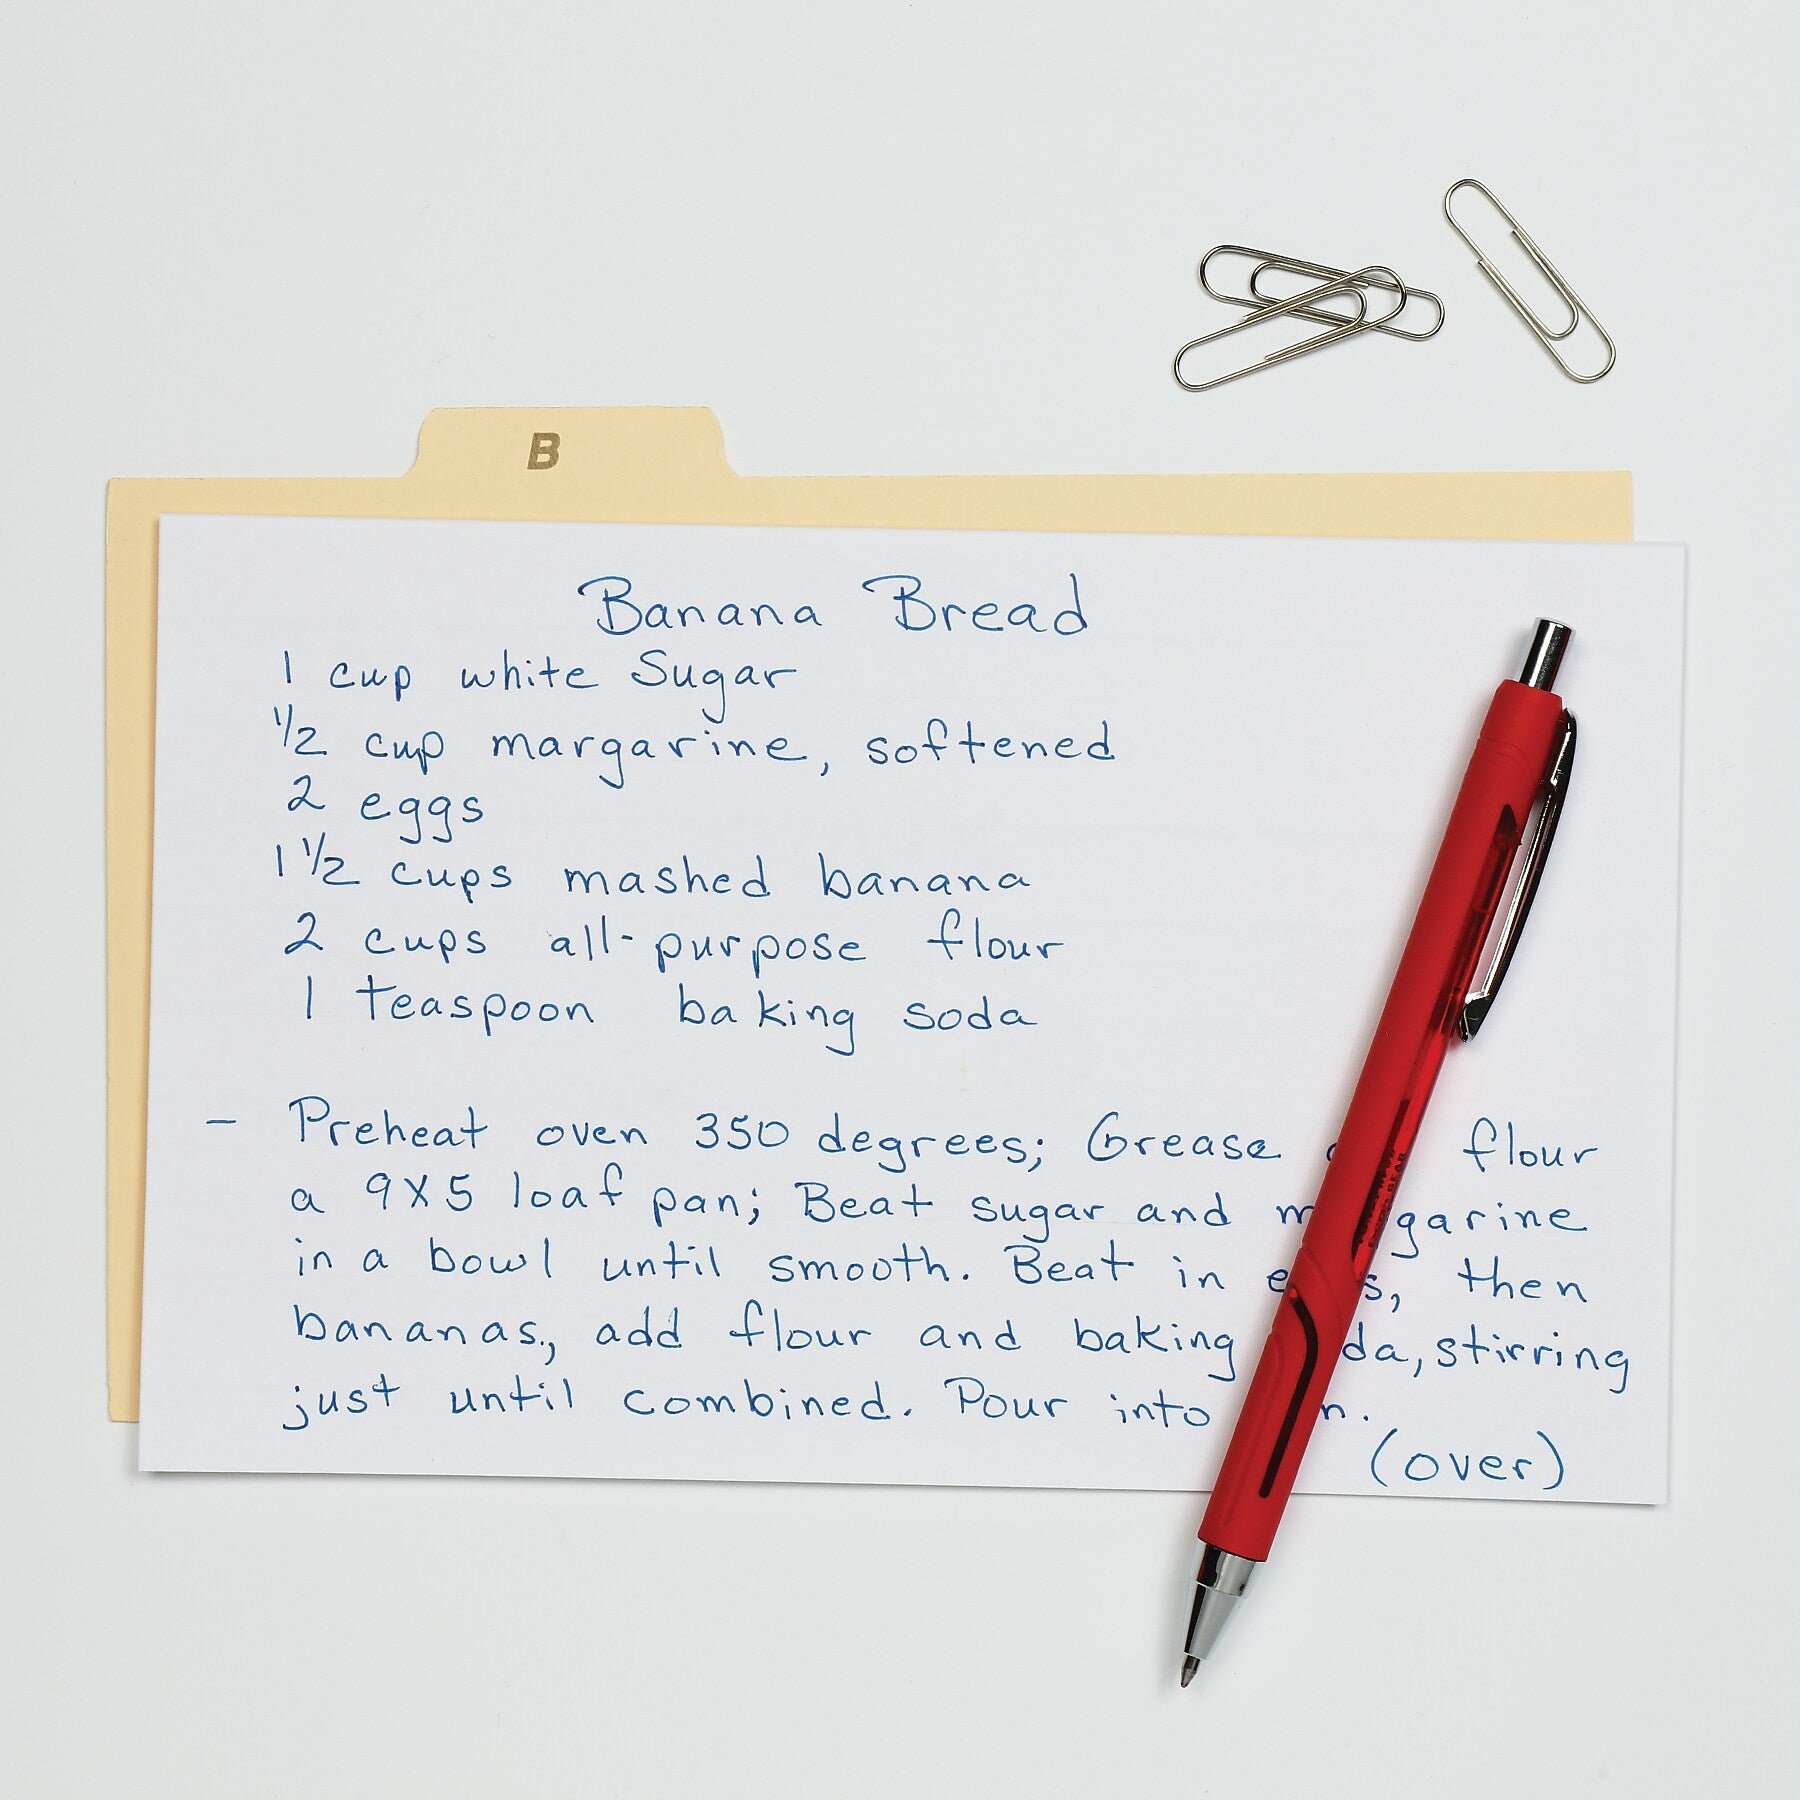 B
Banana Bread
1 cup white Sugar
1/2 cup margarine, softened
2 eggs
1 1/2 cups mashed banana
2 cups all-purpose flour
1 teaspoon baking soda
- Preheat oven 350 degrees; Grease flour
a 9X5 loaf pan; Beat sugar and margarine
in a bowl until smooth. Beat in eggs, then
bananas., add flour and baking soda, stirring
just until combined. Pour into
(over)